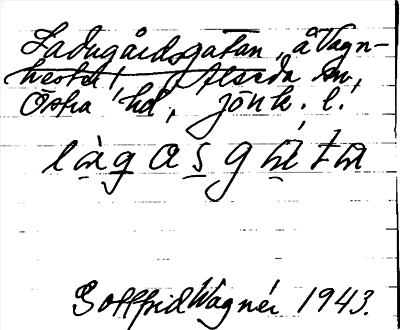 Ladugårdsgatan, å Vagn-
hester, Alseda sn,
Östra hd, Jönk. l.
l a g a s g a t a
Gottfrid Wagnér 1943.